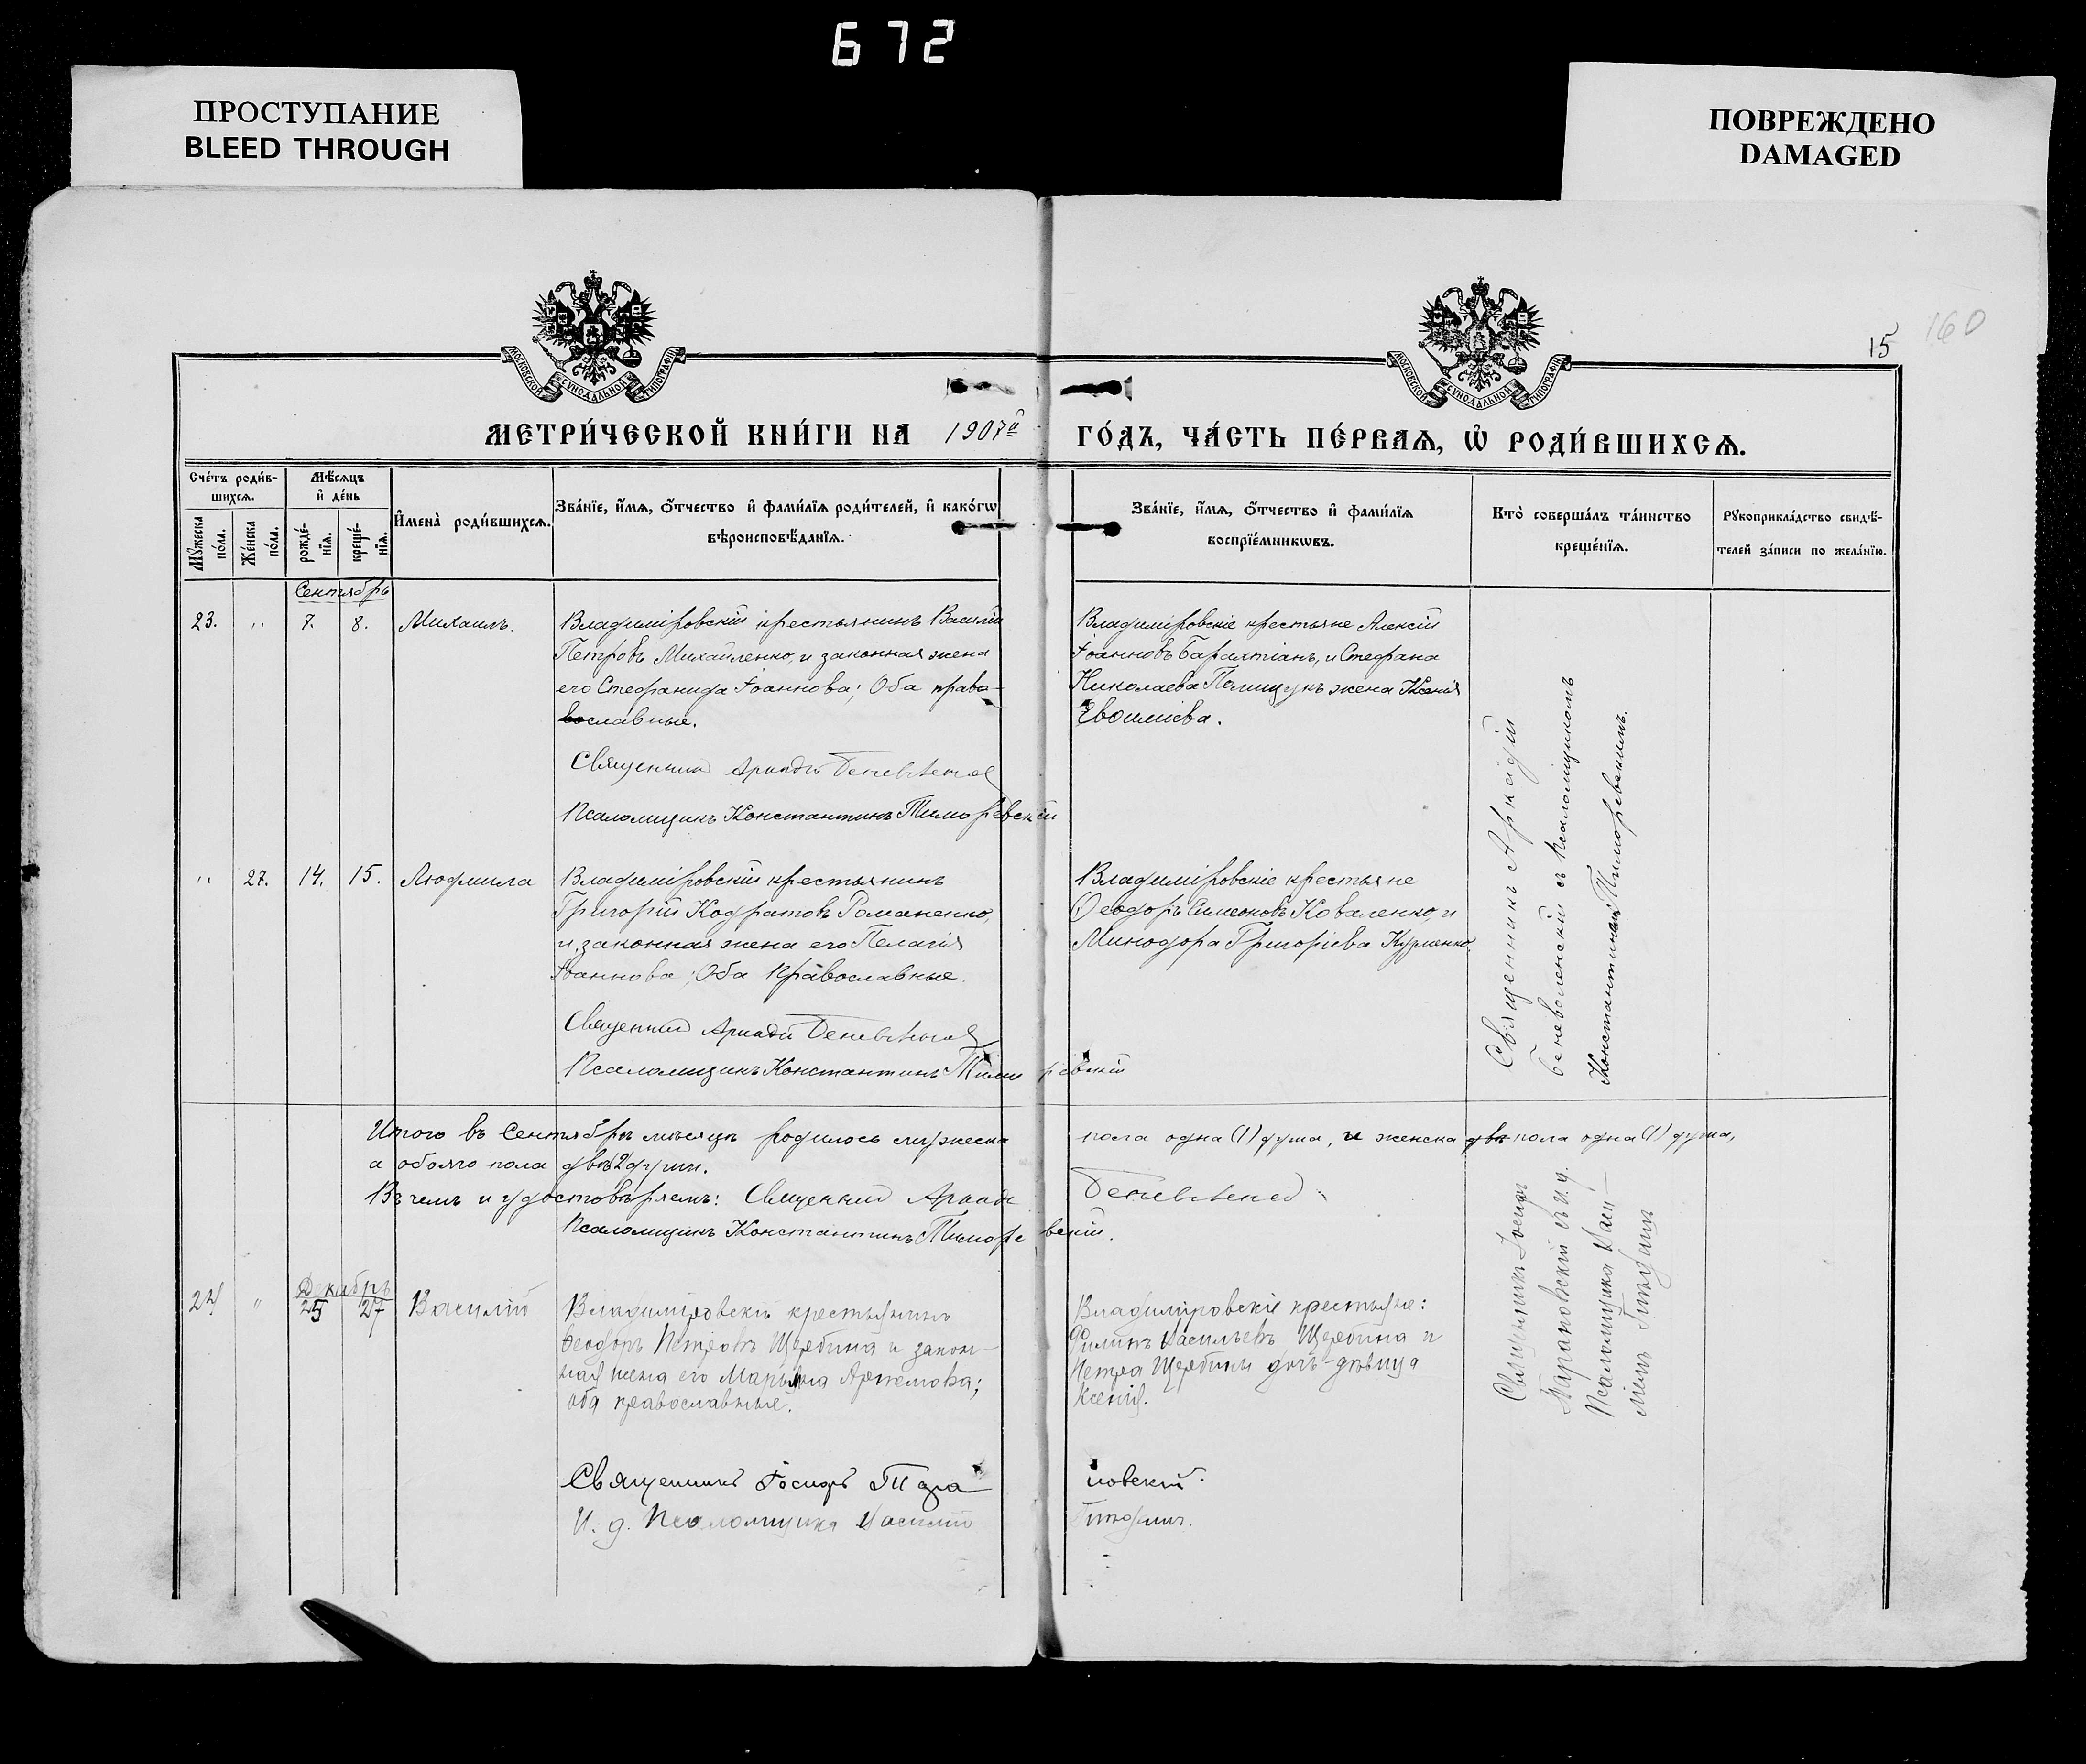 672
ПРОСТУПАНИЕ
BLEED THROUGH
ПОВРЕЖДЕНО
DAMAGED
160
15
МОСКОВСКОЙ СУНОДАЛЬНОЙ ТИПОГРАФІИ
МОСКОВСКОЙ СУНОДАЛЬНОЙ ТИПОГРАФІИ
МЕТРИ́ЧЕСКОЙ КНИ́ГИ НА 1907й ГО́ДЪ, ЧА́СТЬ ПЕ́РВАѦ, Ѡ РОДИ́ВШИХСѦ.
Сче́тъ роди́в-
шихсѧ.
Мꙋ́жеска
по́ла.
Же́нска
по́ла.
Мѣ́сѧцъ
и де́нь
рожде́-
нїѧ.
креще́-
нїѧ.
Имена̀ роди́вшихсѧ.
Зва́нїе, и́мѧ, о́тчество и фами́лїѧ роди́телей, и како́гѡ
вѣроисповѣ́данїѧ.
Зва́нїе, и́мѧ, о́тчество и фами́лїѧ
воспрїе́мникѡвъ.
Кто̀ соверша́лъ та́инство
креще́нїѧ.
Рꙋкоприкла́дство свидѣ́-
телей за́писи по жела́нїю.
Сентябрь
23. " 7. 8. Михаилъ.
Владимiровскiй крестьянинъ Василiй
Петровъ Михайленко, и законная жена
его Стефанида Іоаннова; Оба право-
вославные.
Священникъ Аркадiй Беневоленскiй
Псаломщикъ Константинъ Тиморевскiй
Владимiровскiе крестьяне Алексiй
Іоанновъ Барахтiанъ, и Стефана
Николаева Полищукъ жена Ксенiя
Евѳимiева.
Священникъ Аркадiй
Беневоленскiй съ Псаломщикомъ
Константиномъ Тиморевскимъ.
" 27. 14. 15. Людмила
Владимiровскiй крестьянинъ
Григорiй Кодратовъ Романенко,
и законная жена его Пелагiя
Іоаннова; Оба Православные.
Священникъ Аркадiй Беневоленскiй
Псаломщикъ Константинъ Тиморевскiй
Владимiровскiе крестьяне
Ѳеодоръ Симеоновъ Коваленко, и
Минодора Григорiева Курченко.
Итого въ Сентябрѣ мѣсяцѣ родилось мужеска пола одна (1) душа, и женска двѣ пола одна (1) душа,
а обоего пола двѣ 2 души.
Въ чемъ и удостовѣряемъ: Священникъ Аркадiй Беневоленскiй.
Псаломщикъ Константинъ Тиморевскiй.
Декабрь
24 " 25 27 Василiй
Владимiровскiй крестьянинъ
Ѳеодоръ Петровъ Щербина и закон-
ная жена его Марьяна Артемова;
оба православные.
Владимiровскiе крестьяне:
Филиппъ Васильевъ Щербина и
Петра Щербины дочь-дѣвица
Ксенiя.
Священникъ Іосифъ
Тарановскiй съ И. д.
Псаломщика Васи-
лiемъ
Священникъ Іосифъ Тарановскiй.
И. д. Псаломщика Василiй